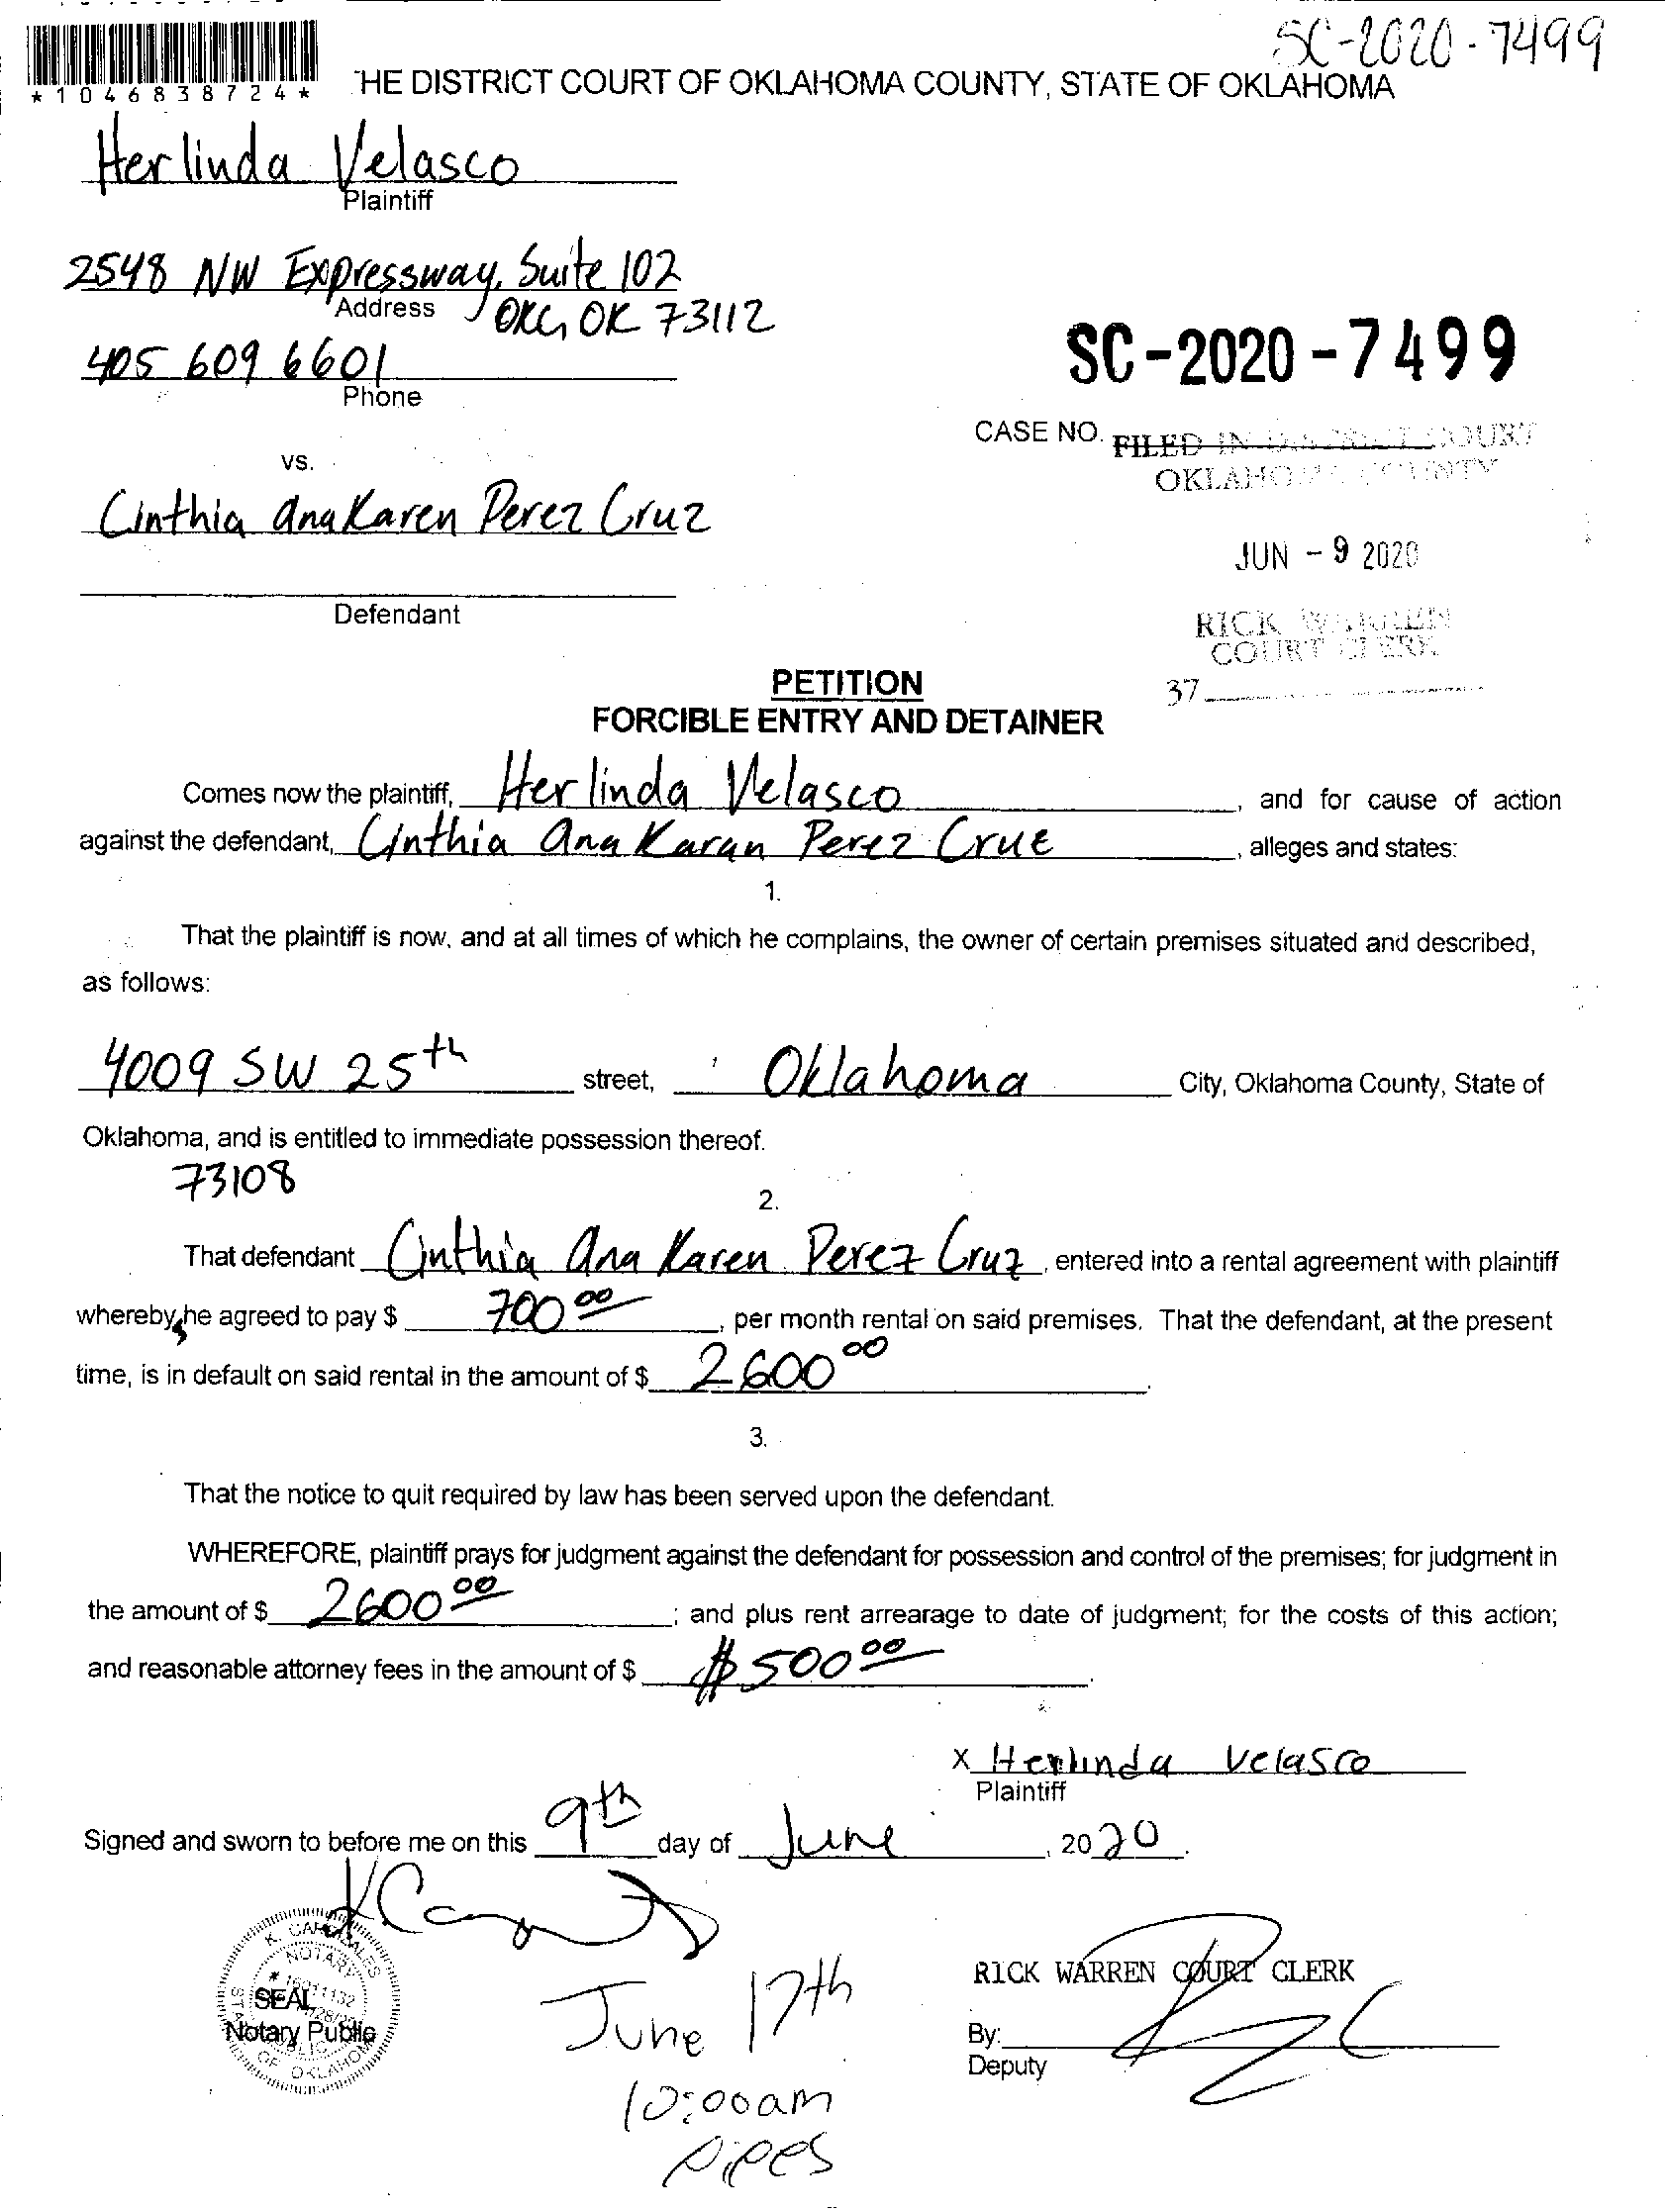 SC-2020-7499
*1046838724*
THE DISTRICT COURT OF OKLAHOMA COUNTY, STATE OF OKLAHOMA
Herlinda Velasco
Plaintiff
2548 NW Expressway, Suite 102
Address
OKC, OK 73112
405 609 6601
Phone
SC-2020-7499
CASE NO.
FILED IN DISTRICT COURT
OKLAHOMA COUNTY
vs.
Cinthia Ana Karen Perez Cruz
JUN - 9 2020
Defendant
RICK WARREN
COURT CLERK
37
PETITION
FORCIBLE ENTRY AND DETAINER
Comes now the plaintiff, Herlinda Velasco, and for cause of action
against the defendant, Cinthia Ana Karan Perez Cruz, alleges and states:
1.
That the plaintiff is now, and at all times of which he complains, the owner of certain premises situated and described,
as follows:
4009 SW 25th street, Oklahoma City, Oklahoma County, State of
Oklahoma, and is entitled to immediate possession thereof.
73108
2.
That defendant Cinthia Ana Karen Perez Cruz, entered into a rental agreement with plaintiff
whereby she agreed to pay $ 700 00, per month rental on said premises. That the defendant, at the present
time, is in default on said rental in the amount of $ 2600 00.
3.
That the notice to quit required by law has been served upon the defendant.
WHEREFORE, plaintiff prays for judgment against the defendant for possession and control of the premises; for judgment in
the amount of $ 2600 00; and plus rent arrearage to date of judgment; for the costs of this action;
and reasonable attorney fees in the amount of $ $500 00.
X Herlinda Velasco
Plaintiff
Signed and sworn to before me on this 9th day of June, 2020.
NOTARY
SEAL
Notary Public
OF OKLAHOMA
RICK WARREN COURT CLERK
By:
Deputy
June 17th
10:00am
Pipes